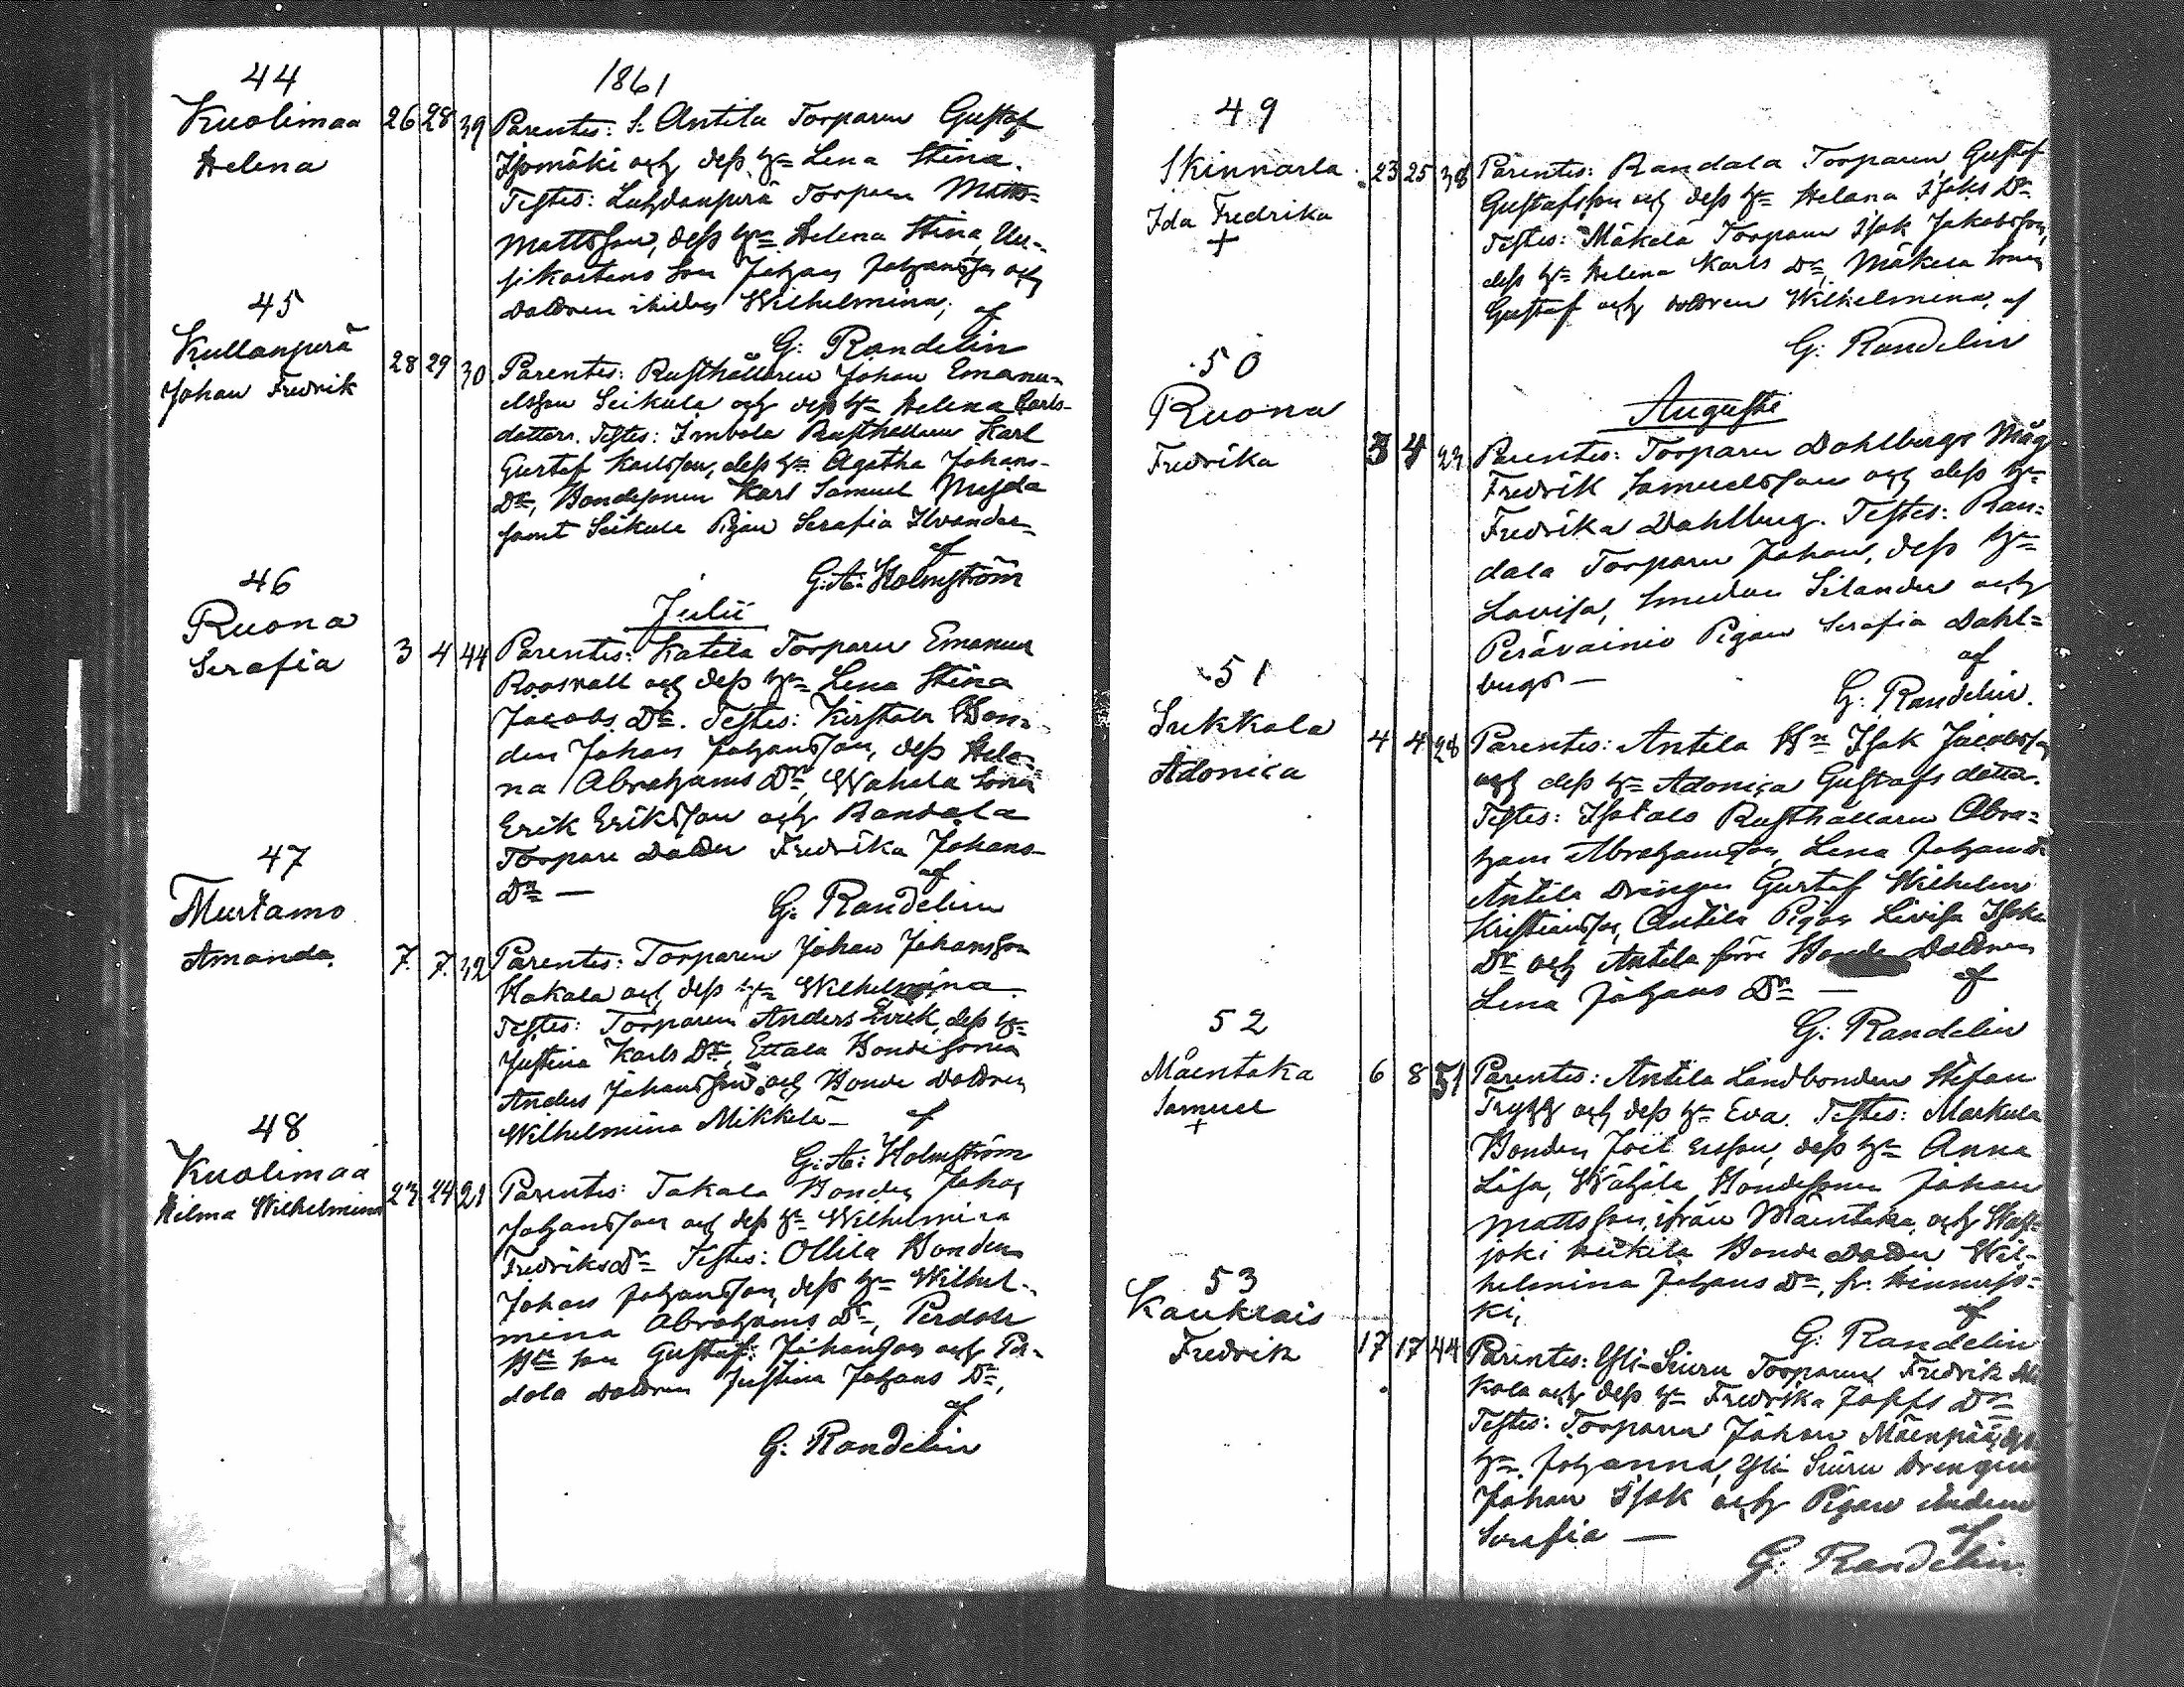 1861
44
Kuolimaa 26 28 39 Parentes: S. Antila Torparen Gustaf
Helena
Isomäki och dess hu Lena Stina.
Testes: Luhdanperä Torparen Matts
Mattsson, dess hu Helena Stina, Uu-
sikartano Son Johan Johansson och
Dottren Wilhelmina, af
G: Randelin
45
Kullanperä 28 29 30 Parentes: Rusthållaren Johan Emanu-
Johan Fredrik
elsson Seikula och dess hu Helena Carls-
dotter. Testes: Imbola Rusthållaren Karl
Gustaf Karlsson, dess hu Agatha Johans-
Dr, Bondesonen Karl Samuel
samt Seikula Pigan Serafia Ilvander
af
G:A: Holmström
Julii
46
Ruona 3 4 44 Parentes: Katila Torparen Emanuel
Serafia
Roosvall och dess hu Lena Stina
Jacobs Dr. Testes: Kirstala Bon-
den Johan Johansson, dess Hele-
na Abrahams Dr, Wahala Sonen
Erik Eriksson och Randala
Torpare Dotter Fredrika Johans-
Dr — af
G: Randelin
47
Murtamo
Amanda 7. 7. 32 Parentes: Torparen Johan Johansson
Hakala och dess hu Wilhelmina.
Testes: Torparen Anders Erick, dess hu
Justina Karls Dr, Ettala Bondesonen
Anders Johansson och Bonde Dottren
Wilhelmina Mikkela — af
G:A: Holmström
48
Kuolimaa
Hilma Wilhelmina 23 24 21 Parentes: Takala Bonden Johan
Johansson och dess hu Wilhelmina
Fredriksdr Testes: Ollila Bonden
Johan Johansson, dess hu Wilhel-
mina Abrahams Dr, Perdola
Bde Son Gustaf Johansson och Per-
dola Dottren Justina Johans Dr,
af
G: Randelin
49
Skinnarla 23 25 38 Parentes: Randala Torparen Gustaf
Ida Fredrika
+
Gustafsson och dess hu Helena Isaks Dr
Testes: Mäkelä Torparen Isak Jakobsson,
dess hu Helena Karls Dr, Mäkelä Sonen
Gustaf och Dottren Wilhelmina, af
G: Randelin
Augusti
50
Ruona
Fredrika 3 4 23 Parentes: Torparen Dahlbergs Måg
Fredrik Samuelsson och dess hu
Fredrika Dahlberg. Testes: Ran-
dala Torparen Johan, dess hu
Lovisa, Smeden Silander och
Perävainio Pigan Serafia Dahl-
bergs — af
G: Randelin.
51
Sukkala 4 4 28 Parentes: Antila Bn Isak Jacobsson
Adonica
och dess hu Adonica Gustafs dotter.
Testes: Isotalo Rusthållaren Abra-
ham Abrahamsson, Lena Johans Dr
Antila Drängen Gustaf Wilhelm
Kristiansson, Antila Pigan Lovisa Isaks
Dr och Antila förre Bonde Dottren
Lena Johans Dr — af
G: Randelin
52
Mäentaka 6 8 31 Parentes: Antila Landbonden Stefan
Samuel
+
Trygg och dess hu Eva. Testes: Markula
Bonden Joel Ersson, dess hu Anna
Lisa, Wähälä Bondesonen Johan
Mattsson, ifrån Mäentaka, och
joki Heikilä Bonde Dotter Wil-
helmina Johans Dr, fr. Hinnerjo-
ki, af
G: Randelin
53
Kaukrais
Fredrik 17 17 44 Parentes: Yli-Siuru Torparen Fredrik
kola och dess hu Fredrika Josefs Dr
Testes: Torparen Johan Mäenpää, dess
hu Johanna, Yli Siuru Drängen
Johan Isak och Pigan
Serafia — af
G: Randelin.